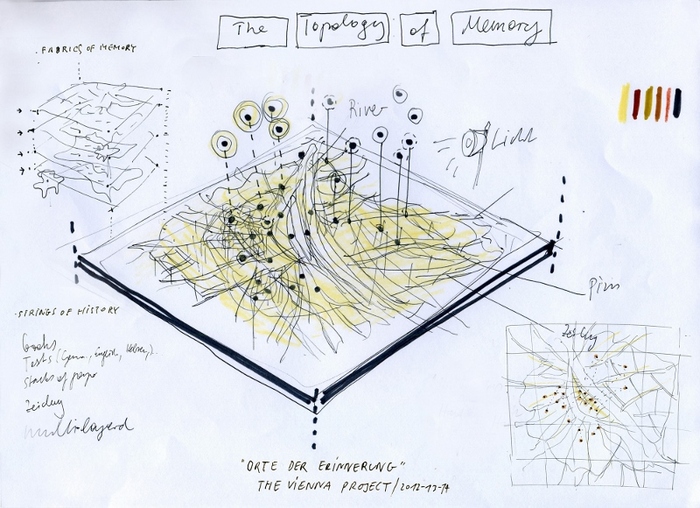 The Topology of Memory
FABRICS OF MEMORY
River
Licht
Pins
STRINGS OF HISTORY
Books
Texts (
stacks of paper
Zeichng
multilayered
Zeichng
"ORTE DER ERINNERUNG"
THE VIENNA PROJECT/2012-13-14